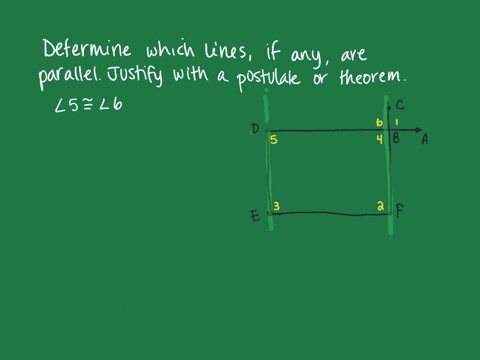 Determine which lines, if any, are
parallel. Justify with a postulate or theorem.
∠5≅∠6
C
D 6 1
5 4 B A
3 2
E F